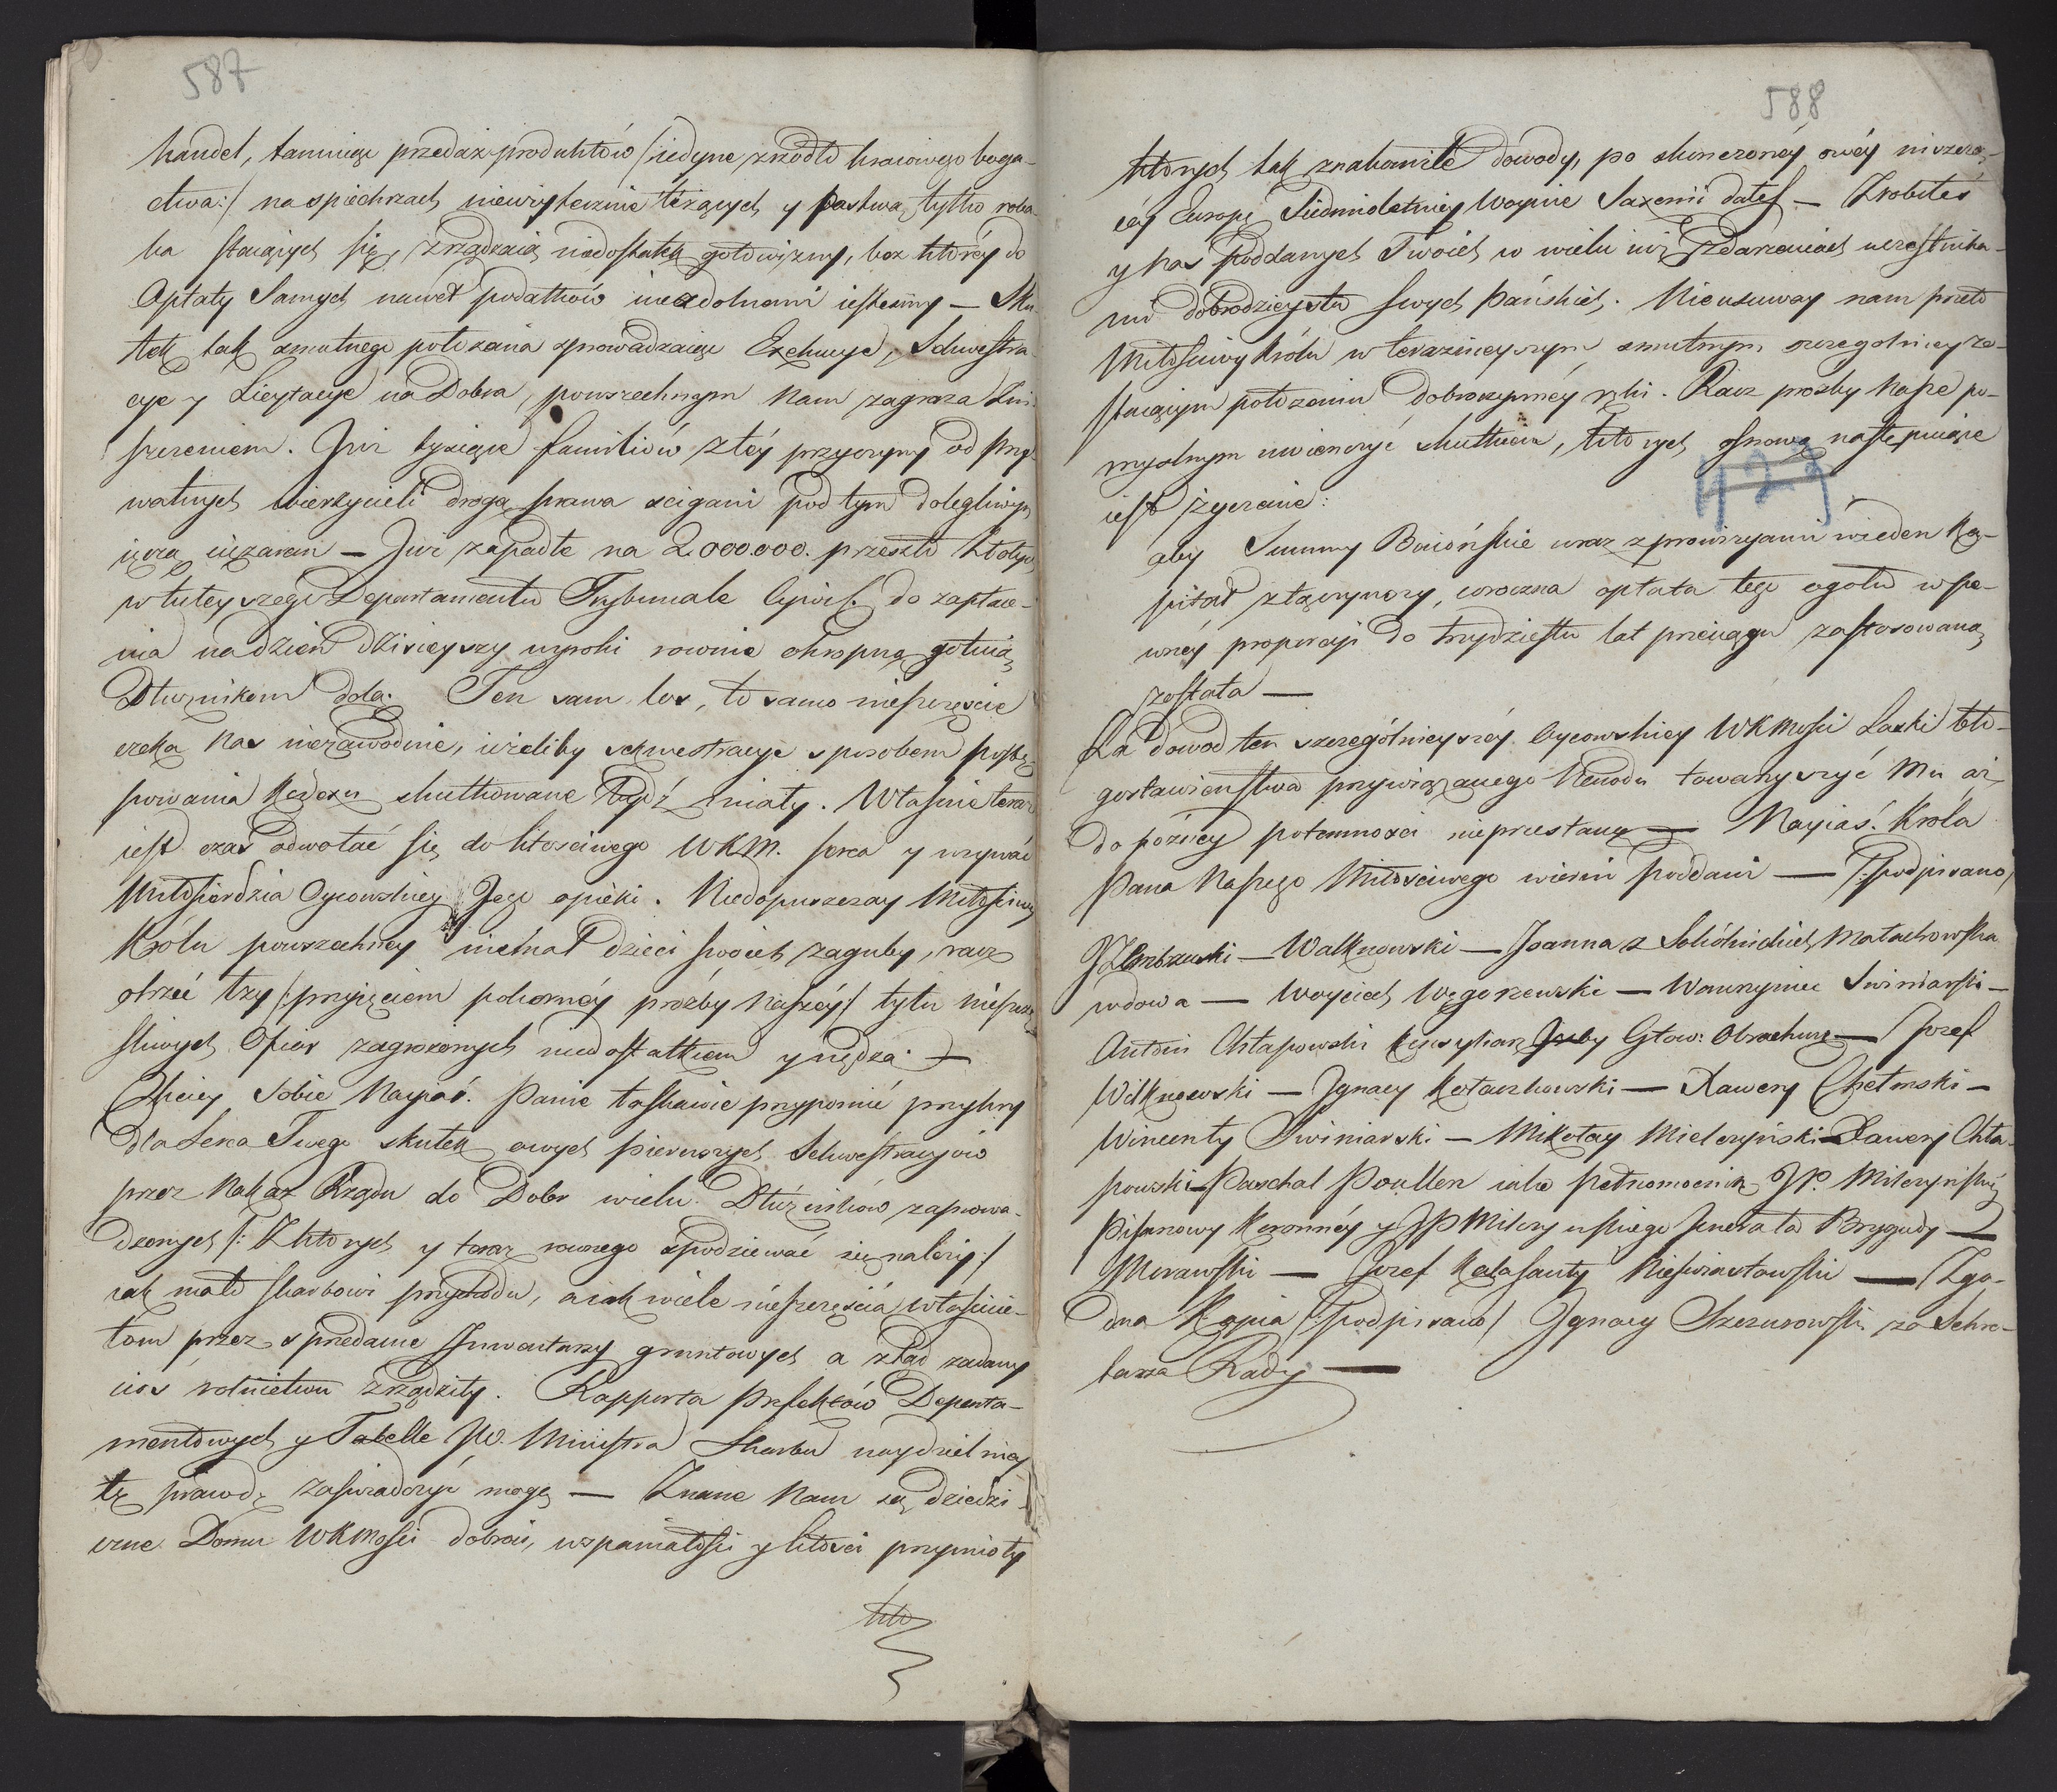 587
handel, tamuiąc przedaż produktów /: iedyne zrzodło kraiowego boga-
ctwa :/ na spichrzach niewyteczinie leżących y pastwą tylko roba-
ka staiących się, zrządzaią niedostatek gotowizny, bez którey do
Opłaty Samych nawet podatków niezdolnemi iestesmy — Sku-
tek tak smutnego położenia sprowadzaiąc Exekucye, Sekwestra-
cye y Licytacye na Dobra, powszechnym Nam zagraża zni-
szczeniem. Juz tysiące familiów z tey przyczyny od pry-
watnych wierzycieli drogą prawa scigani pod tym dolegliwym
ięczą ciężarem — Juz zapadłe na 2.000.000. przeszło Złotych
w tuteyszego Departamentu Trybunale Cywil. do zapłace-
nia na dzień dzisieyszy wyroki rownie okropną gotuią
Dłużnikom dolą. Ten sam los, to samo nieszczęscie
czeka Nas niezawodnie, ieżeliby sekwestracye sposobem postę-
powania Kodexu skutkowane bydź miały. Własnie teraz
iest czas odwołać się do litosciwego WKM. serca y wzywać
Miłosierdzia Oycowskiey Jego opieki. Niedopuszczay Miłosciwy
Królu powszechney niemal dzieci swoich zaguby, racz
otrzeć łzy /: przyięciem pokorney prozby Naszéy :/ tylu nieszczę-
sliwych Ofiar zagrożonych niedostatkiem y nędzą. —
Chciey Sobie Nayiaś. Panie łaskawie przypomnić przykry
dla Serca Twego skutek owych pierwszych Sekwestracyów
przez Nakaz Rządu do Dobr wielu Dłużników zaprowa-
dzonych /: Z których y teraz rownego spodziewać się należy :/
iak mało skarbowi przychodu, a iak wiele nieszczęścia właścicie-
lom przez sprzedanie Inwentarzy gruntowych a ztąd zadany
cios rolnictwu zrządziły. Rapporta Prefektów Departa-
mentowych y Tabelle JW. Ministra Skarbu naydzielniey
tę prawdę zaświadczyć mogą — Znane Nam są dziedzi-
czne Domu WKMości dobroci, wspaniałości y litości przymioty
któ
588
których tak znakomite dowody, po skończonéy owéy niszczą-
céy Europę Siedmioletniey Woynie Saxonii dałeś — Zrobiłeś
y nas Poddanych Twoich w wielu iuż Zdarzeniach uczestnika-
mi dobrodzieystw swych Pańskich. Nieusuway nam przeto
Miłosciwy Królu w teraznieyszym smutnym szczegolniey zo-
staiącym położeniu dobroczynnéy ręki. Racz prozby Nasze po-
myslnym uwienczyć skutkiem, których osnową następuiące
427
iest życzenie:
aby Summy Baiońskie wraz z prowizyami w ieden Ka-
pitał złączywszy, coroczna opłata tego ogółu w pe-
wnéy proporcyi do trzydziestu lat przeciągu zastosowaną
została —
Za dowod ten szczególnieyszéy Oycowskiey WKMości Łaski bło-
gosławieństwa przywiązanego Narodu towarzyszyć Mu aż
do poźney potomnosci nieprzestaną — Nayiaś. Króla
Pana Naszego Miłosciwego wierni poddani — /: Podpisano /
Walknowski — Joanna z Sokólnickich Małachowska
wdowa — Woyciech Węgorzewski — Wawrzyniec Swiniarski —
Antoni Chłapowski Izby Głow: Obrachunk — Jozef
Wilknowski — Ignacy Kołaczkowski — Xawery Chełmski —
Wincenty Swiniarski — Mikołay Mielczyński — Xawery Chła-
powski — Paschal Poullen iako Pełnomocnik JP. Milczyńskiéy
Pisarzowy Koronnéy y JP Milczyńskiego Jenerała Brygady —
Morawski — Jozef Kalasanty Nieswiastowski — Zgo-
dna Kopia /: Podpisano / Ignacy Szczurowski za Sekre-
tarza Rady —